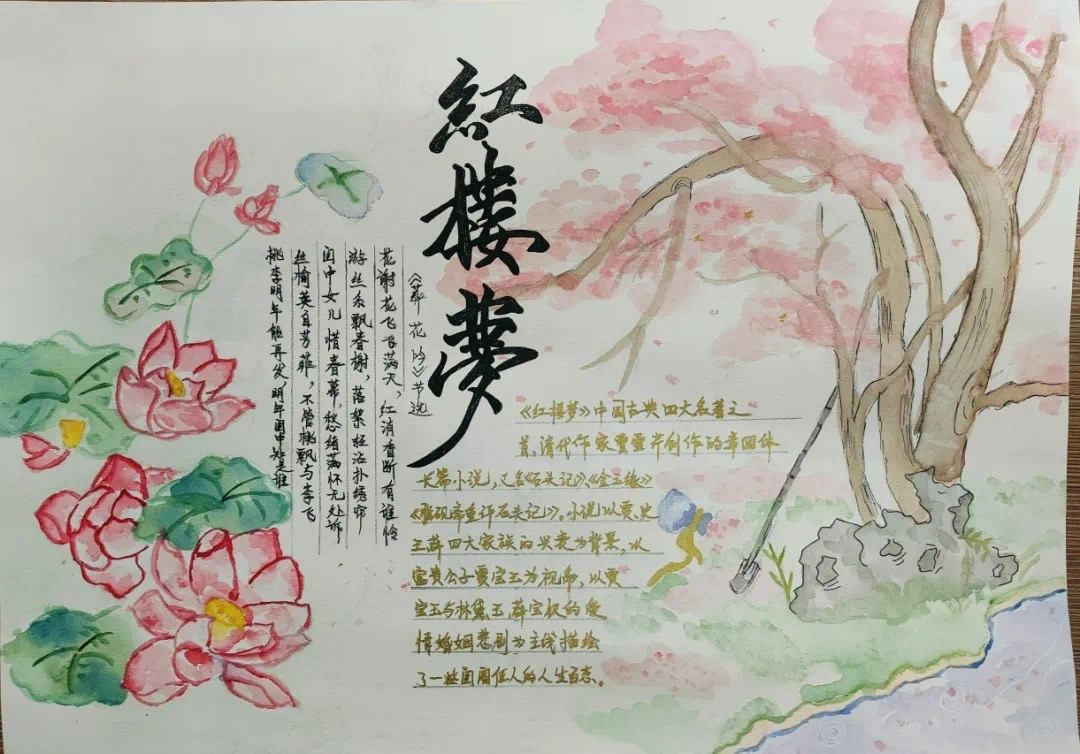 紅樓夢
《葬花吟》节选
花谢花飞飞满天，红消香断有谁怜
游丝系飘春榭，落絮轻沾扑绣帘
闺中女儿惜春暮，愁绪满怀无处诉
丝榆荚自芳菲，不管桃飘与李飞
桃李明年能再发，明年闺中知是谁
《红楼梦》中国古典四大名著之
首，清代作家曹雪芹创作的章回体
长篇小说，又名《石头记》《金玉缘》
《脂砚斋重评石头记》，小说以贾、史
王薛四大家族的兴衰为背景，以
富贵公子贾宝玉为视角，以贾
宝玉与林黛玉薛宝钗的爱
情婚姻悲剧为主线描绘
了一些闺阁佳人的人生百态。